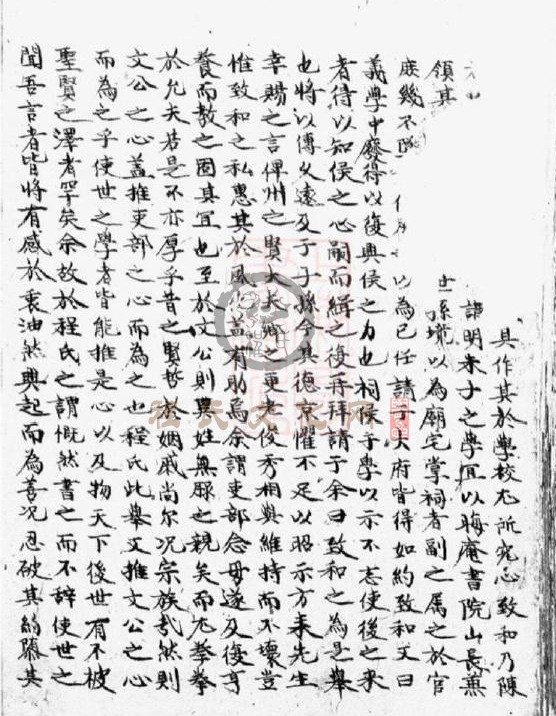 具作其於學校尤所究心致和乃陳
請明朱子之學宜以晦庵書院山長兼
領其 世孫境以為廟宅掌祠者副之属之於官
庶幾不 以為己任請于大府皆得如約致和又曰
義學中廢得以復興侯之力也祠侯于學以示不忘使後之来
者得以知侯之心嗣而緝之復再拜請于余曰致和之為是舉
也將以傳久遠及于子孫今其德京懼不足以昭示方来先生
幸賜之言俾州之賢大夫鄉之更老俊秀相與維持而不壞豈
惟致和之私惠其於風化蓋有助焉余謂吏部念母遂及復亨
養而教之固其宜也至於文公則異姓無服之親矣而尤拳拳
於允夫若是不亦厚乎昔之賢哲於姻戚尚尔况宗族哉然則
文公之心蓋推吏部之心而為之也程氏此舉又推文公之心
而為之乎使世之學者皆能推是心以及物天下後世有不被
聖賢之澤者罕矣余故於程氏之謂慨然書之而不辭使世之
聞吾言者皆將有感於衷油然興起而為善况忍破其約隳其